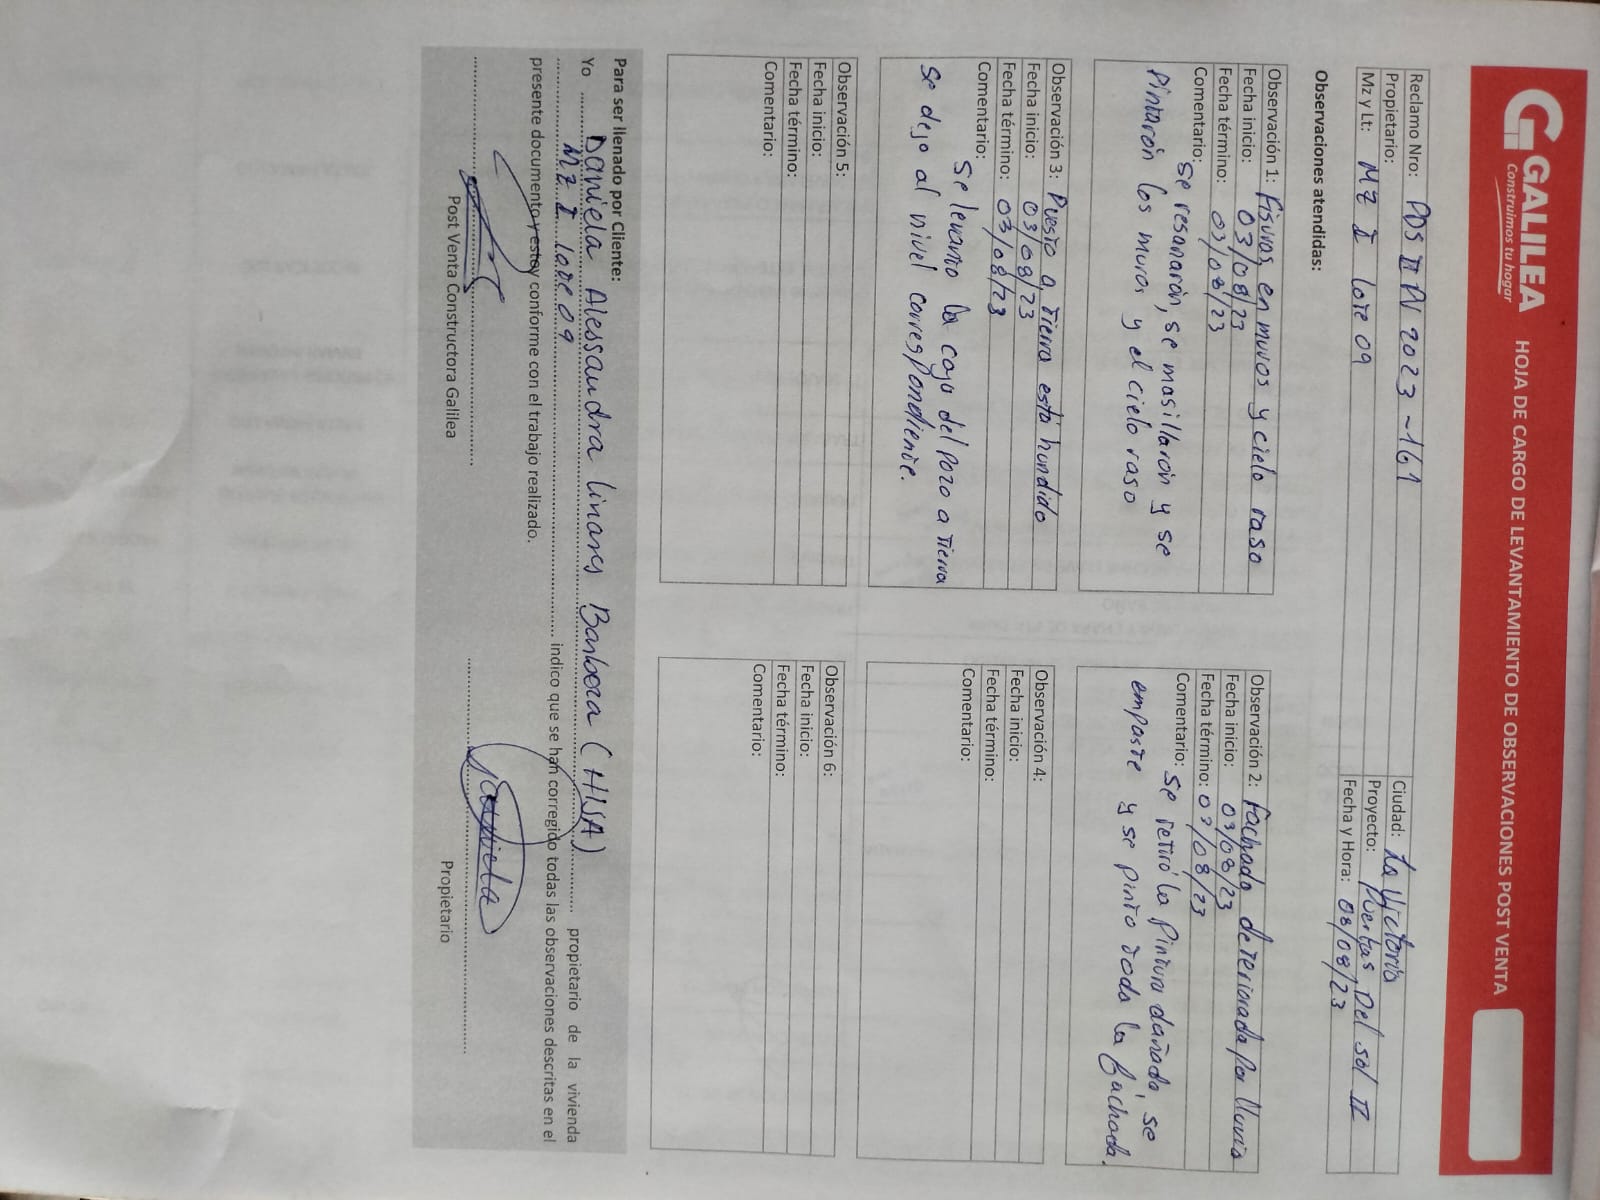 GALILEA
Construimos tu hogar
HOJA DE CARGO DE LEVANTAMIENTO DE OBSERVACIONES POST VENTA
Reclamo Nro: PDS II PV 2023 - 161
Propietario:
Mz y Lt: MZ I lote 09
Ciudad: La Victoria
Proyecto: Puertas Del Sol II
Fecha y Hora: 08/08/23
Observaciones atendidas:
Observación 1: Fisuras en muros y cielo raso
Fecha inicio: 03/08/23
Fecha término: 03/08/23
Comentario: Se resanarón, se masillarón y se
Pintarón los muros y el cielo raso
Observación 2: Fachada deteriorada por lluvia
Fecha inicio: 03/08/23
Fecha término: 03/08/23
Comentario: Se retiró la pintura dañada, se
empaste y se pinto toda la fachada.
Observación 3: Puesto a tierra está hundido
Fecha inicio: 03/08/23
Fecha término: 03/08/23
Comentario: Se levanto la caja del pozo a tierra
Se dejo al nivel correspondiente.
Observación 4:
Fecha inicio:
Fecha término:
Comentario:
Observación 5:
Fecha inicio:
Fecha término:
Comentario:
Observación 6:
Fecha inicio:
Fecha término:
Comentario:
Para ser llenado por Cliente:
Yo Daniela Alessandra linares Barbora (HIJA) propietario de la vivienda
MZ I lote 09 indico que se han corregido todas las observaciones descritas en el
presente documento y estoy conforme con el trabajo realizado.
Daniela
Post Venta Constructora Galilea
Propietario